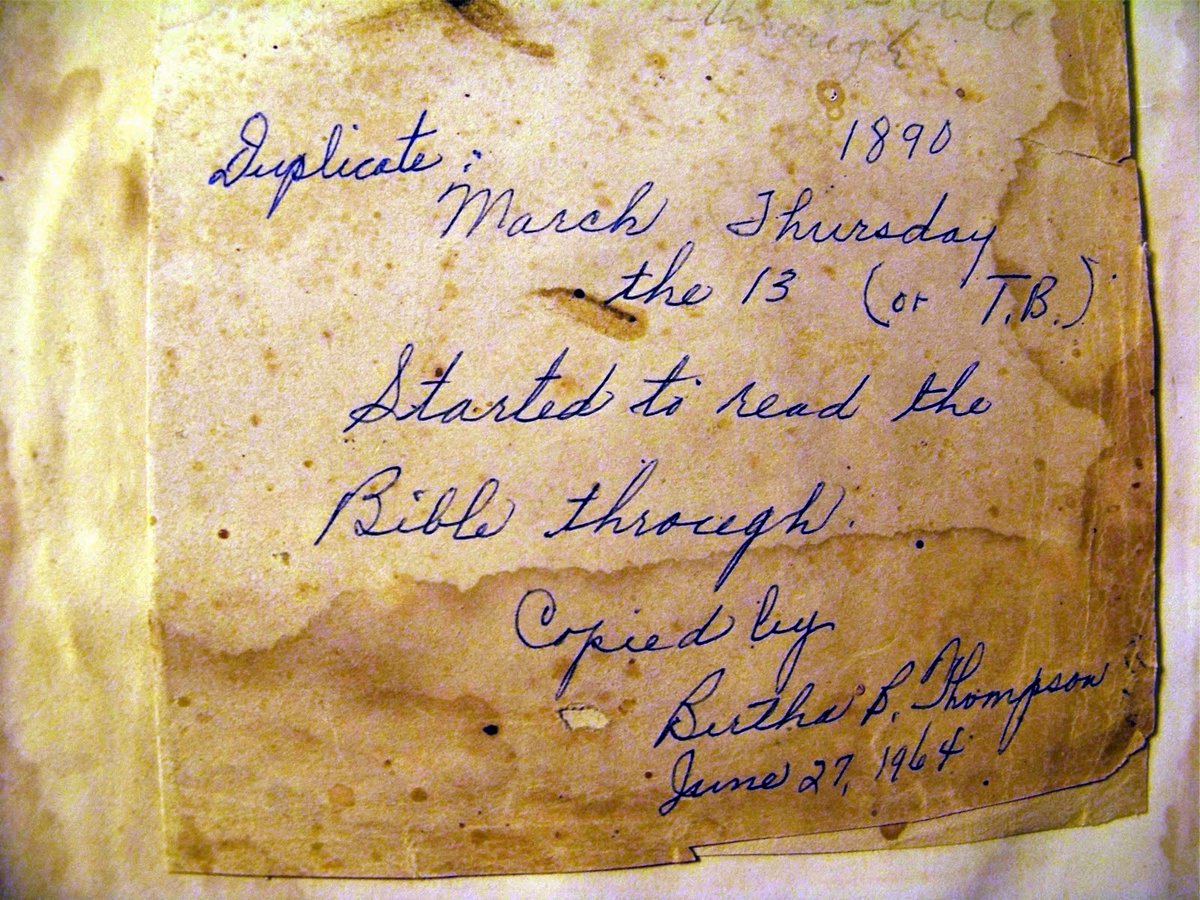 through
Duplicate: 1890
March Thursday
the 13 (or T.B.)
Started to read the
Bible through.
Copied by
Bertha B. Thompson
June 27, 1964